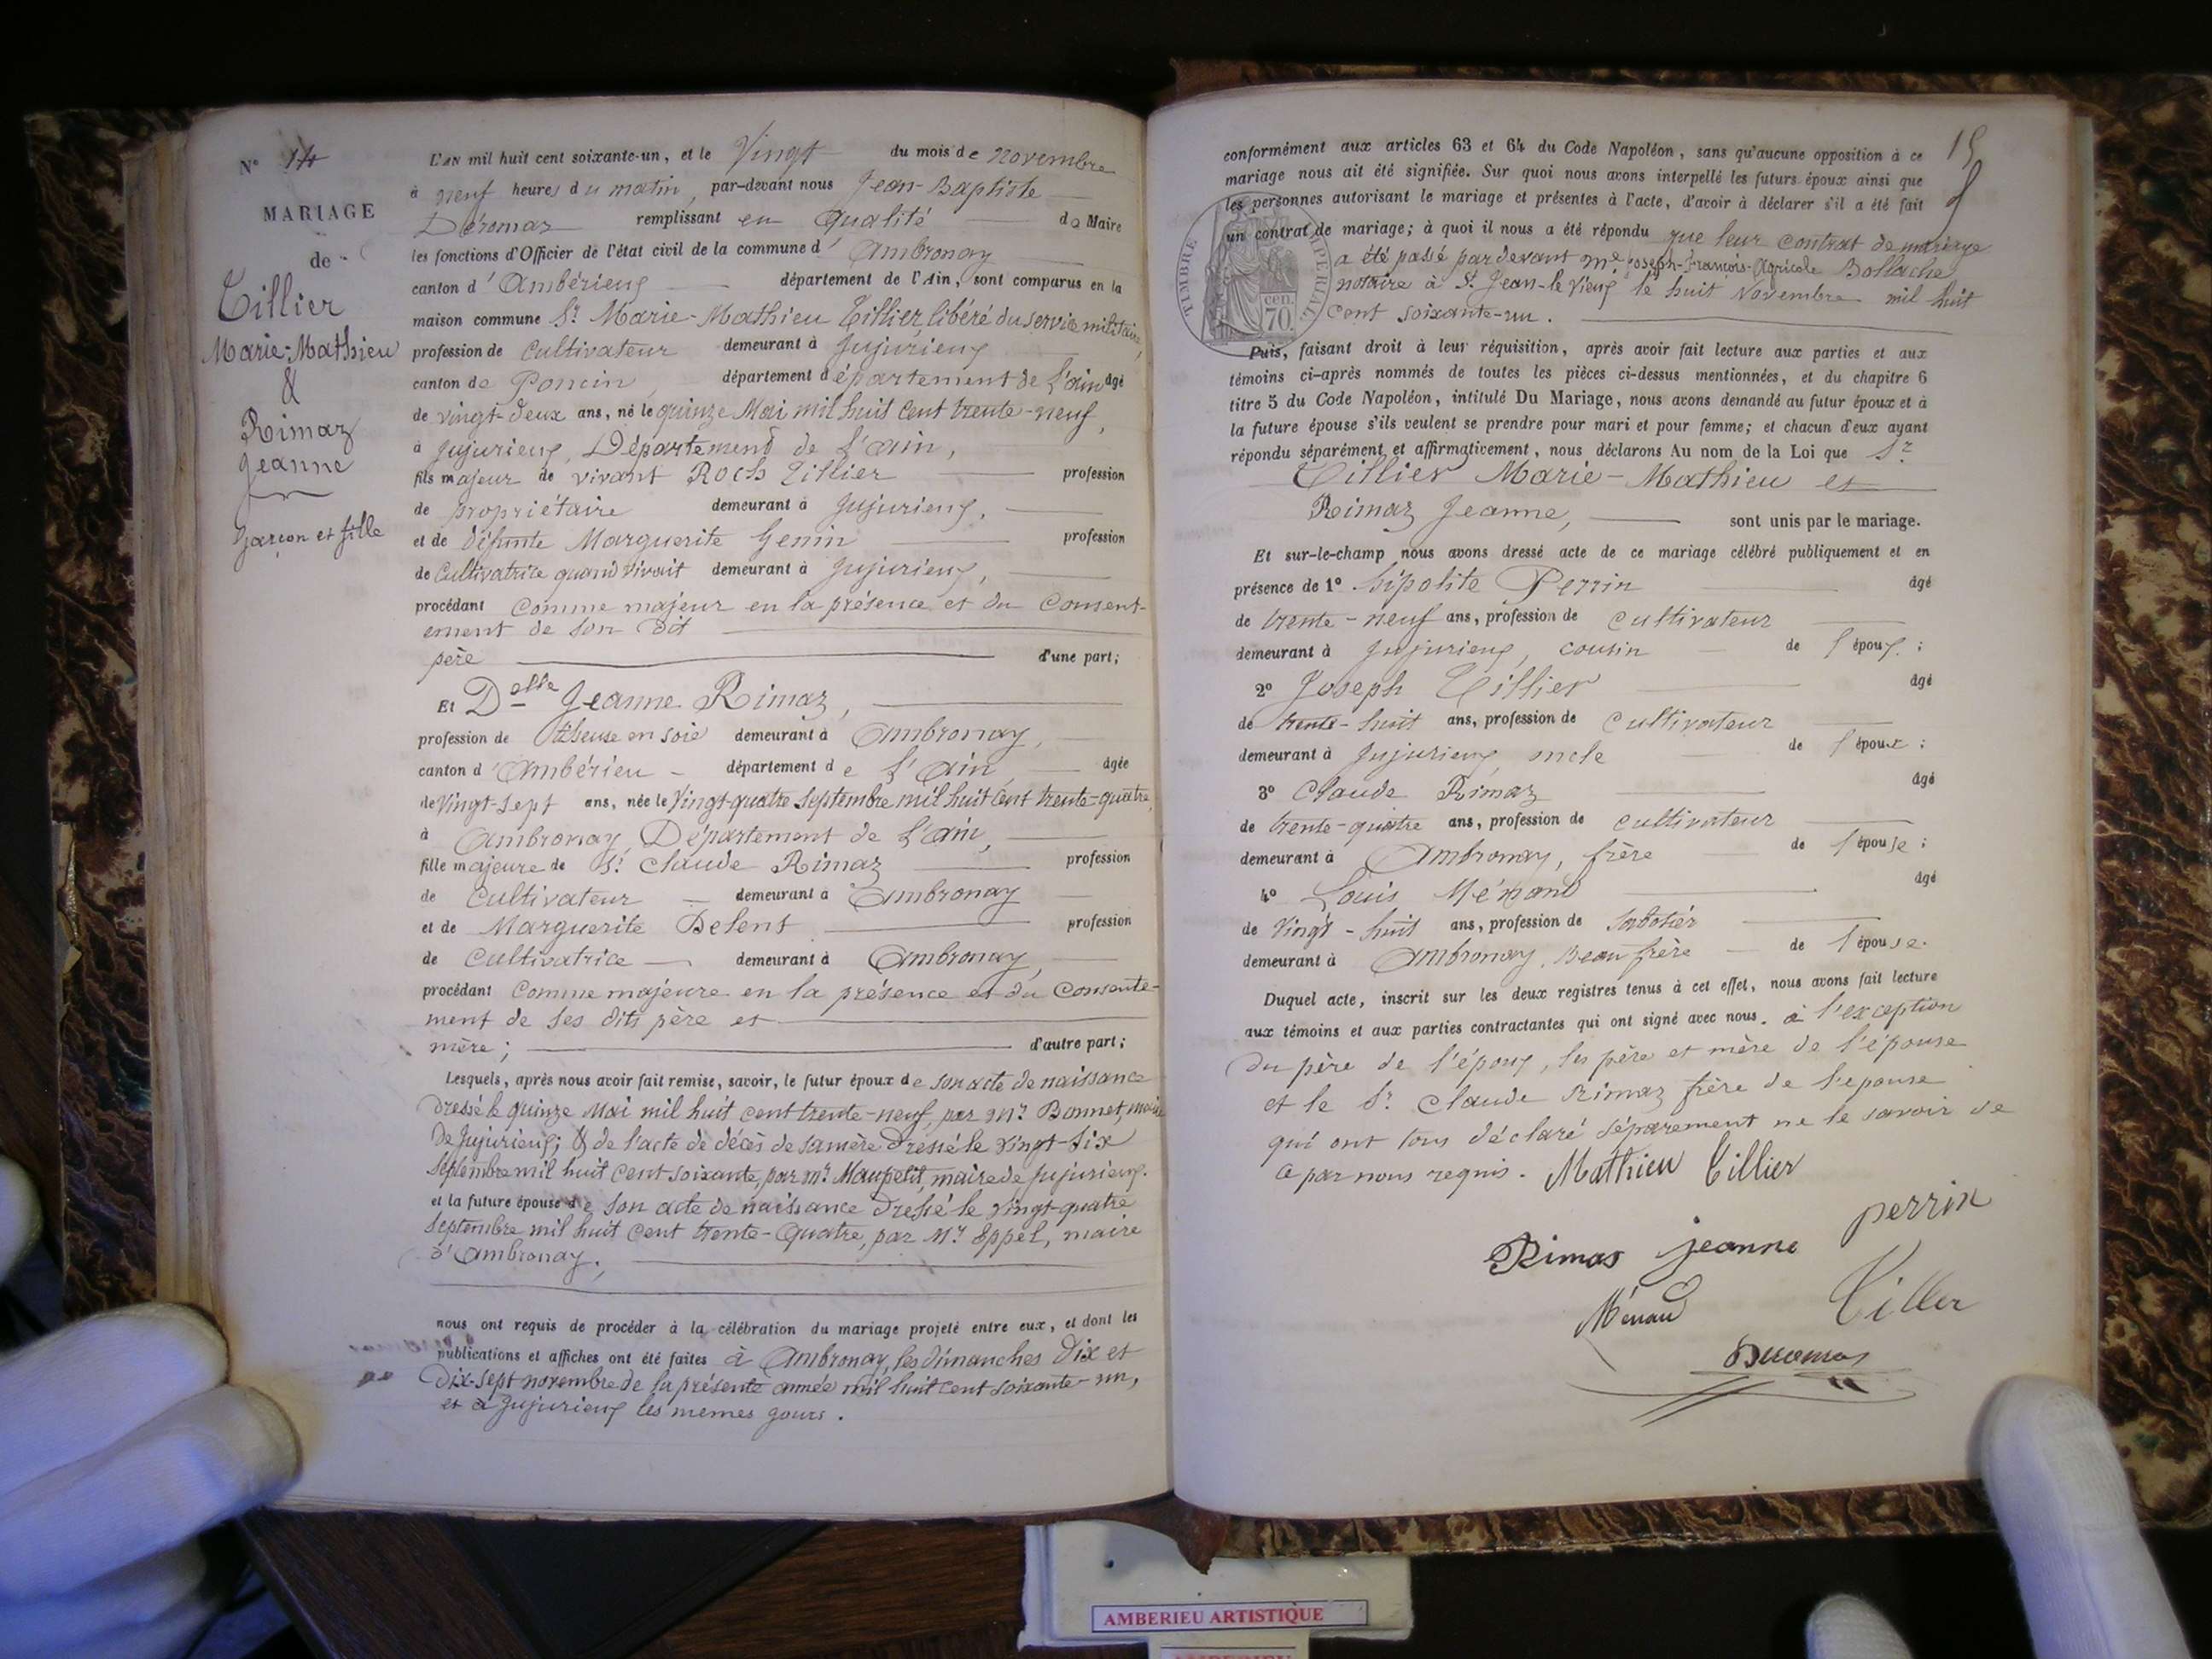 N° 14
MARIAGE
de
Tillier
Marie-Mathieu
&
Rimaz
Jeanne
Garçon et fille
L'AN mil huit cent soixante-un, et le Vingt du mois de novembre
à neuf heures du matin, par-devant nous Jean-Baptiste
Déromaz remplissant en qualité de Maire
les fonctions d'Officier de l'état civil de la commune d'Ambronay
canton d'Ambérieux département de l'Ain, sont comparus en la
maison commune Sr Marie-Mathieu Tillier, libéré du service militaire,
profession de Cultivateur demeurant à Jujurieux
canton de Poncin, département département de l'ain âgé
de vingt-deux ans, né le quinze Mai mil huit cent trente-neuf,
à Jujurieux, Département de l'ain,
fils majeur de vivant Roch Tillier profession
de propriétaire demeurant à Jujurieux,
et de défunte Marguerite Genin profession
de Cultivatrice quand vivait demeurant à Jujurieux,
procédant Comme majeur en la présence et du Consent-
ement de son dit
père d'une part;
Et Delle Jeanne Rimaz,
profession de tisseuse en soie demeurant à Ambronay,
canton d'Ambérieu département de l'Ain, âgée
de Vingt-sept ans, née le Vingt-quatre septembre mil huit cent trente-quatre,
à Ambronay, Département de l'ain,
fille majeure de Sr Claude Rimaz profession
de Cultivateur demeurant à Ambronay
et de Marguerite Belent profession
de Cultivatrice demeurant à Ambronay,
procédant Comme majeure en la présence et du Consente-
ment de ses dits père et
mère; d'autre part;
Lesquels, après nous avoir fait remise, savoir, le futur époux de son acte de naissance
dressé le quinze Mai mil huit cent trente-neuf, par Mr Bonnet, maire
de Jujurieux; & de l'acte de décès de sa mère dressé le vingt-six
septembre mil huit cent soixante, par Mr Maupetit, maire de Jujurieux.
et la future épouse de son acte de naissance dressé le vingt-quatre
septembre mil huit cent trente-quatre, par Mr Eppel, maire
d'Ambronay.
nous ont requis de procéder à la célébration du mariage projeté entre eux, et dont les
publications et affiches ont été faites à Ambronay, les dimanches dix et
dix-sept novembre de la présente année mil huit cent soixante-un,
et à Jujurieux les memes jours.
15
conformément aux articles 63 et 64 du Code Napoléon, sans qu'aucune opposition à ce
mariage nous ait été signifiée. Sur quoi nous avons interpellé les futurs époux ainsi que
les personnes autorisant le mariage et présentes à l'acte, d'avoir à déclarer s'il a été fait
un contrat de mariage; à quoi il nous a été répondu que leur contrat de mariage
a été passé pardevant Me Joseph-François-Agricole Bollache
notaire à St Jean-le-Vieux le huit Novembre mil huit
cent soixante-un.
TIMBRE IMPERIAL
70 cen.
Puis, faisant droit à leur réquisition, après avoir fait lecture aux parties et aux
témoins ci-après nommés de toutes les pièces ci-dessus mentionnées, et du chapitre 6
titre 5 du Code Napoléon, intitulé Du Mariage, nous avons demandé au futur époux et à
la future épouse s'ils veulent se prendre pour mari et pour femme; et chacun d'eux ayant
répondu séparément et affirmativement, nous déclarons Au nom de la Loi que Sr
Tillier Marie-Mathieu et
Rimaz Jeanne, sont unis par le mariage.
Et sur-le-champ nous avons dressé acte de ce mariage célébré publiquement et en
présence de 1° hipolite Perrin âgé
de trente-neuf ans, profession de cultivateur
demeurant à Jujurieux, cousin de l'époux;
2° Joseph Tillier âgé
de trente-huit ans, profession de Cultivateur
demeurant à Jujurieux, oncle de l'époux;
3° Claude Rimaz âgé
de trente-quatre ans, profession de cultivateur
demeurant à Ambronay, frère de l'épouse;
4° Louis Ménand âgé
de Vingt-huit ans, profession de sabotier
demeurant à Ambronay, Beau frère de l'épouse.
Duquel acte, inscrit sur les deux registres tenus à cet effet, nous avons fait lecture
aux témoins et aux parties contractantes qui ont signé avec nous. à l'exception
du père de l'époux, les père et mère de l'épouse
et le Sr Claude Rimaz frère de l'epouse
qui ont tous déclaré séparement ne le savoir de
ce par nous requis. Mathieu Tillier
perrin
Rimas jeanne
Ménand Tiller
Deromas
AMBERIEU ARTISTIQUE
AMBERIEU